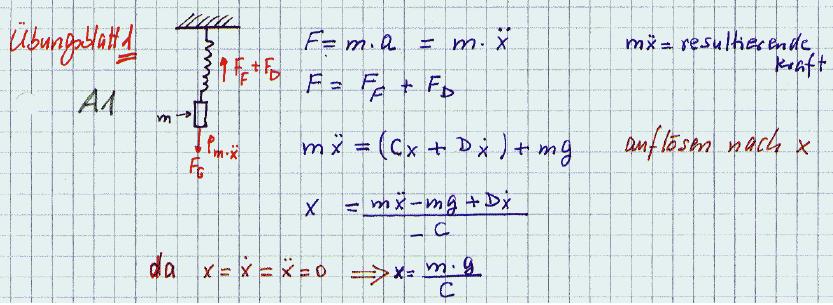 Übungsblatt 1
A1
F_F + F_D
m
m·ẍ
F_G
F = m·a = m·ẍ
mẍ = resultierende
kraft
F = F_F + F_D
mẍ = (Cx + Dẋ) + mg
auflösen nach x
x = (mẍ - mg + Dẋ) / -C
da x = ẋ = ẍ = 0 ⟹ x = m·g / C